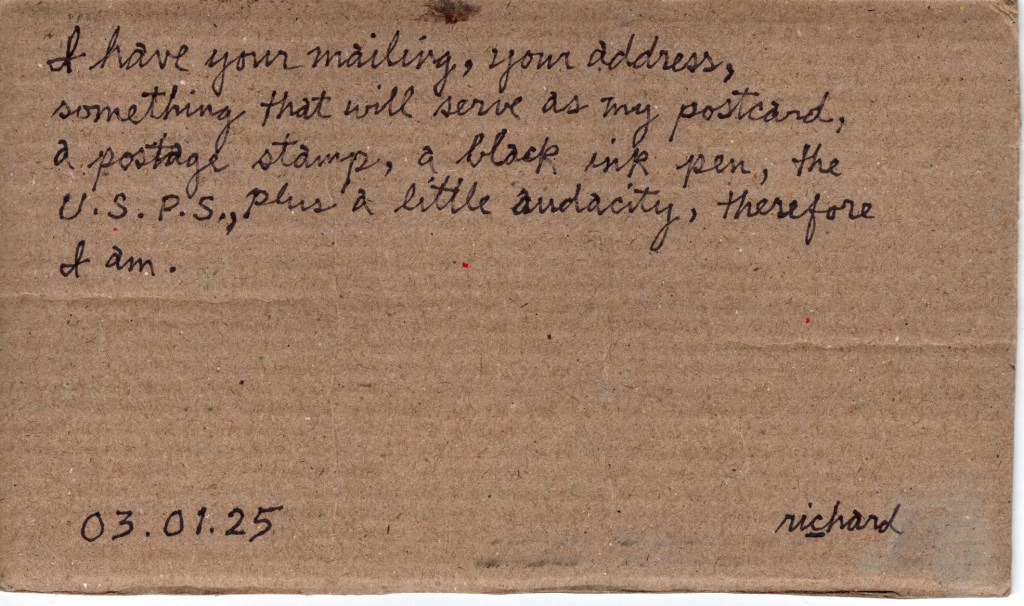 I have your mailing, your address,
something that will serve as my postcard,
a postage stamp, a black ink pen, the
U.S.P.S., plus a little audacity, therefore
I am.
03.01.25
richard